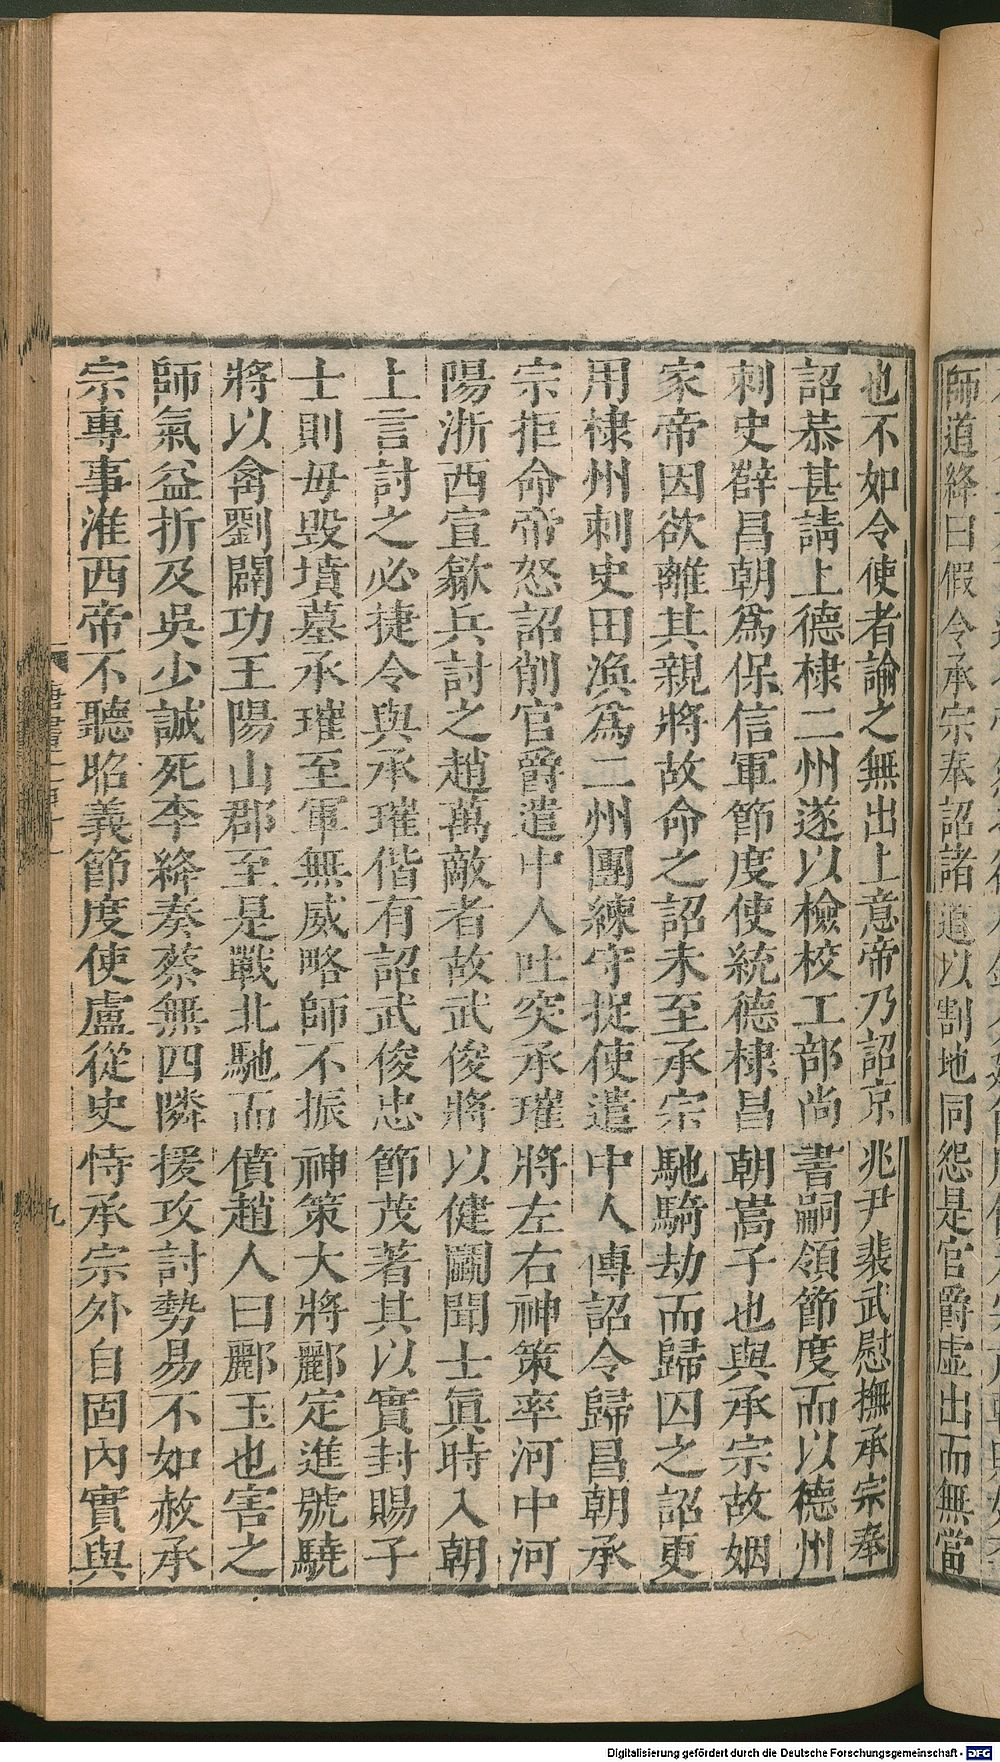 師道絳曰假令承宗奉詔諸道以割地同怨是官爵虛出而無當
也不如令使者諭之無出上意帝乃詔京兆尹裴武慰撫承宗奉
詔恭甚請上德棣二州遂以檢校工部尚書嗣領節度而以德州
刺史薛昌朝爲保信軍節度使統德棣昌朝嵩子也與承宗故姻
家帝因欲離其親將故命之詔未至承宗馳騎劫而歸囚之詔更
用棣州刺史田渙爲二州團練守捉使遣中人傳詔令歸昌朝承
宗拒命帝怒詔削官爵遣中人吐突承璀將左右神策率河中河
陽浙西宣歙兵討之趙萬敵者故武俊將以健鬭聞士眞時入朝
上言討之必捷令與承璀偕有詔武俊忠節茂著其以實封賜子
士則毋毀墳墓承璀至軍無威略師不振神策大將酈定進號驍
將以禽劉闢功王陽山郡至是戰北馳而僨趙人曰酈王也害之
師氣益折及吳少誠死李絳奏蔡無四隣援攻討勢易不如赦承
宗專事淮西帝不聽昭義節度使盧從史恃承宗外自固內實與
九
Digitalisierung gefördert durch die Deutsche Forschungsgemeinschaft - DFG